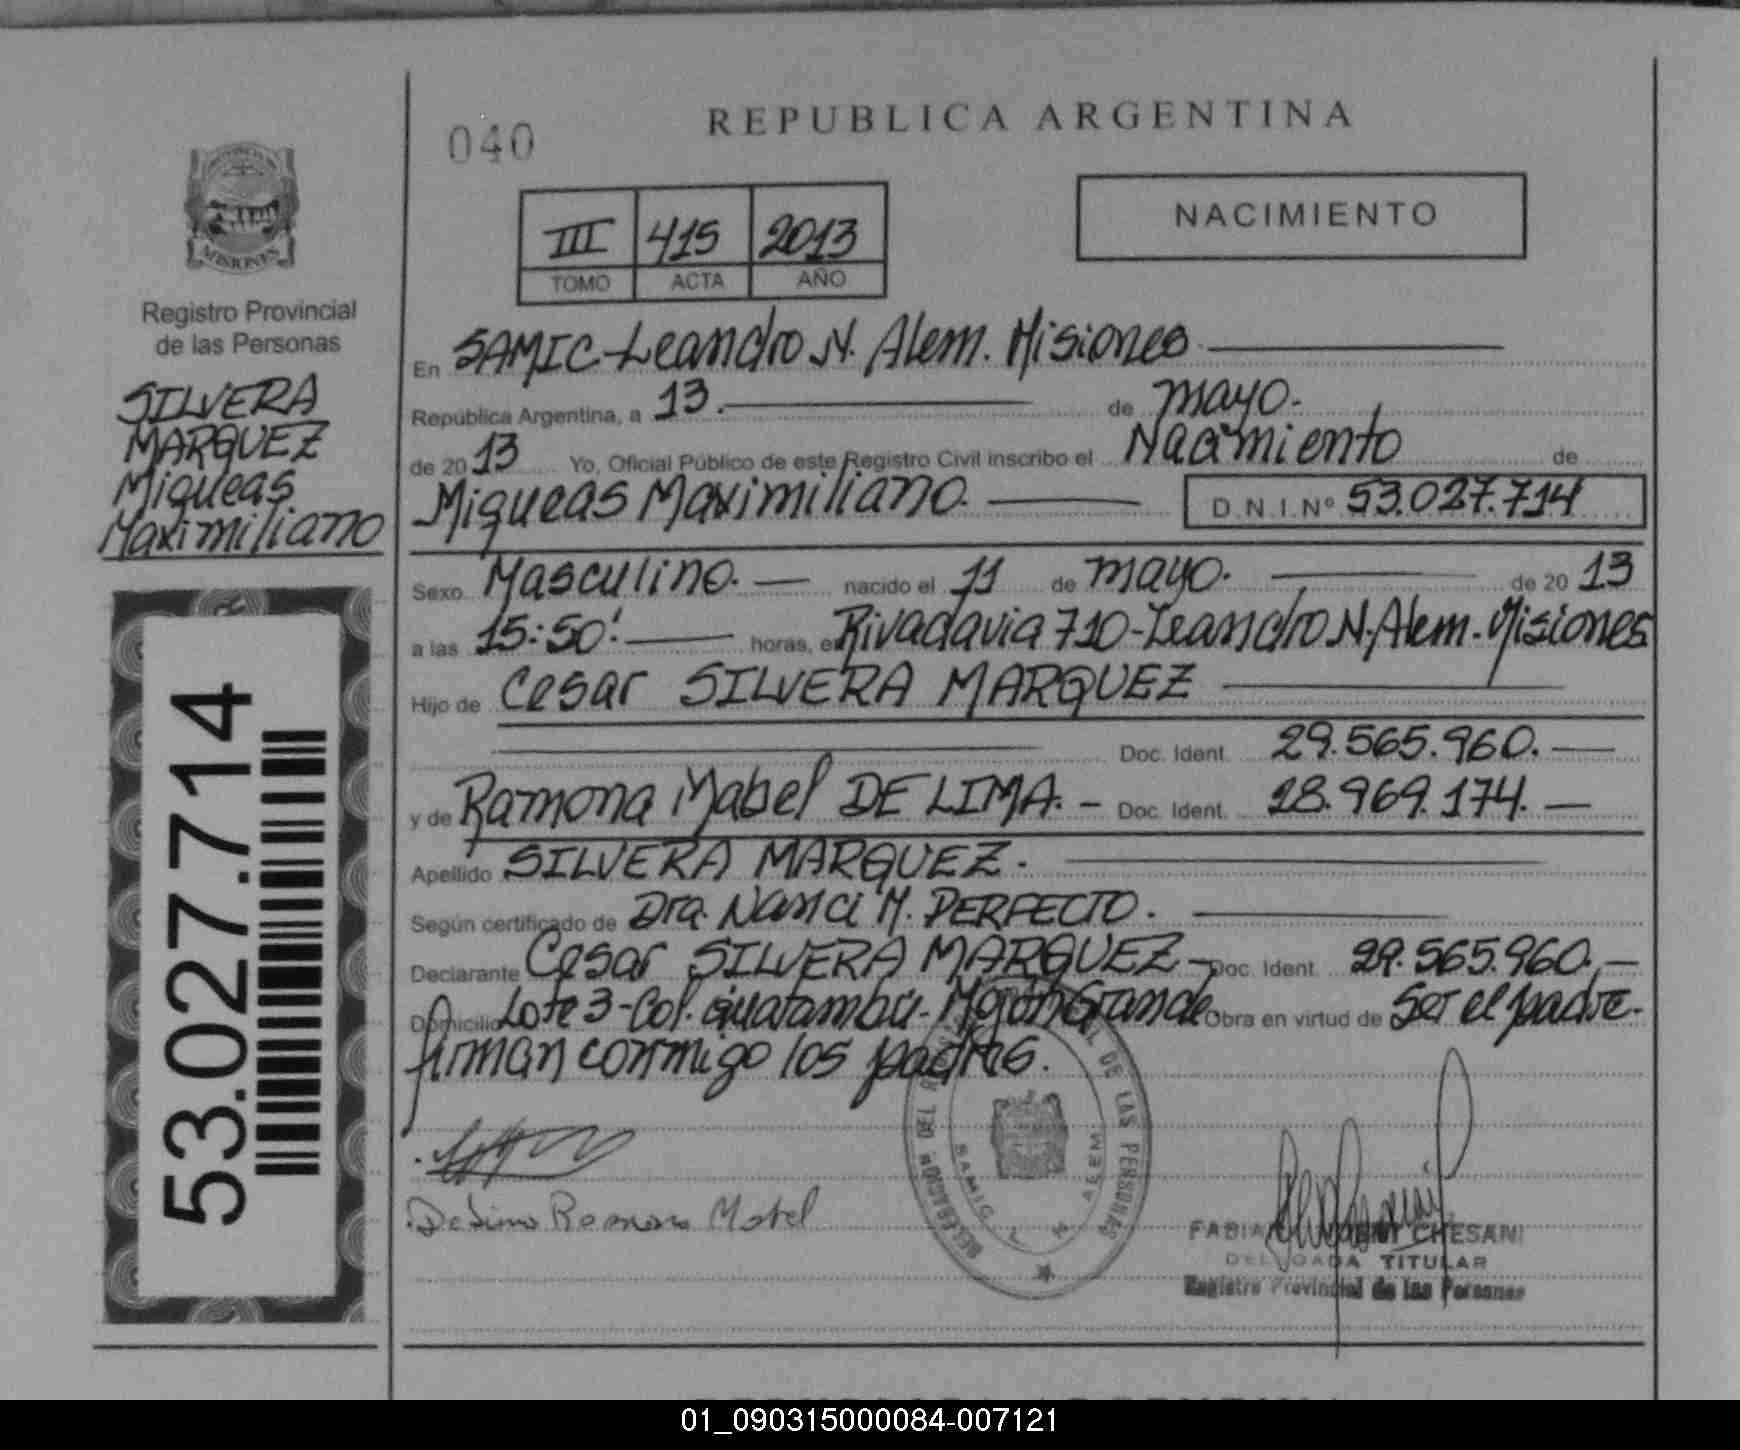 040
REPUBLICA ARGENTINA
III 415 2013
TOMO ACTA AÑO
NACIMIENTO
MISIONES
Registro Provincial
de las Personas
SILVERA
MARQUEZ
Miqueas
Maximiliano
53.027.714
En SAMIC-Leandro N. Alem. Misiones
República Argentina, a 13. de mayo.
de 2013 Yo, Oficial Público de este Registro Civil inscribo el Nacimiento de
Miqueas Maximiliano. D.N.I.Nº 53.027.714
Sexo Masculino. nacido el 11 de mayo. de 2013
a las 15:50' horas, en Rivadavia 710-Leandro N. Alem. Misiones
Hijo de Cesar SILVERA MARQUEZ
Doc. Ident. 29.565.960.
y de Ramona Mabel DE LIMA. - Doc. Ident. 28.969.174.
Apellido SILVERA MARQUEZ.
Según certificado de Dra. Nanci M. PERFECTO.
Declarante Cesar SILVERA MARQUEZ - Doc. Ident. 29.565.960.
Domicilio Lote 3-Col. Guatambú-Mojón Grande. Obra en virtud de Ser el padre.
firman conmigo los padres.
DE LAS PERSONAS
SAMIC L N ALEM
CHESANI
DELEGADA TITULAR
Registro Provincial de las Personas
01_090315000084-007121